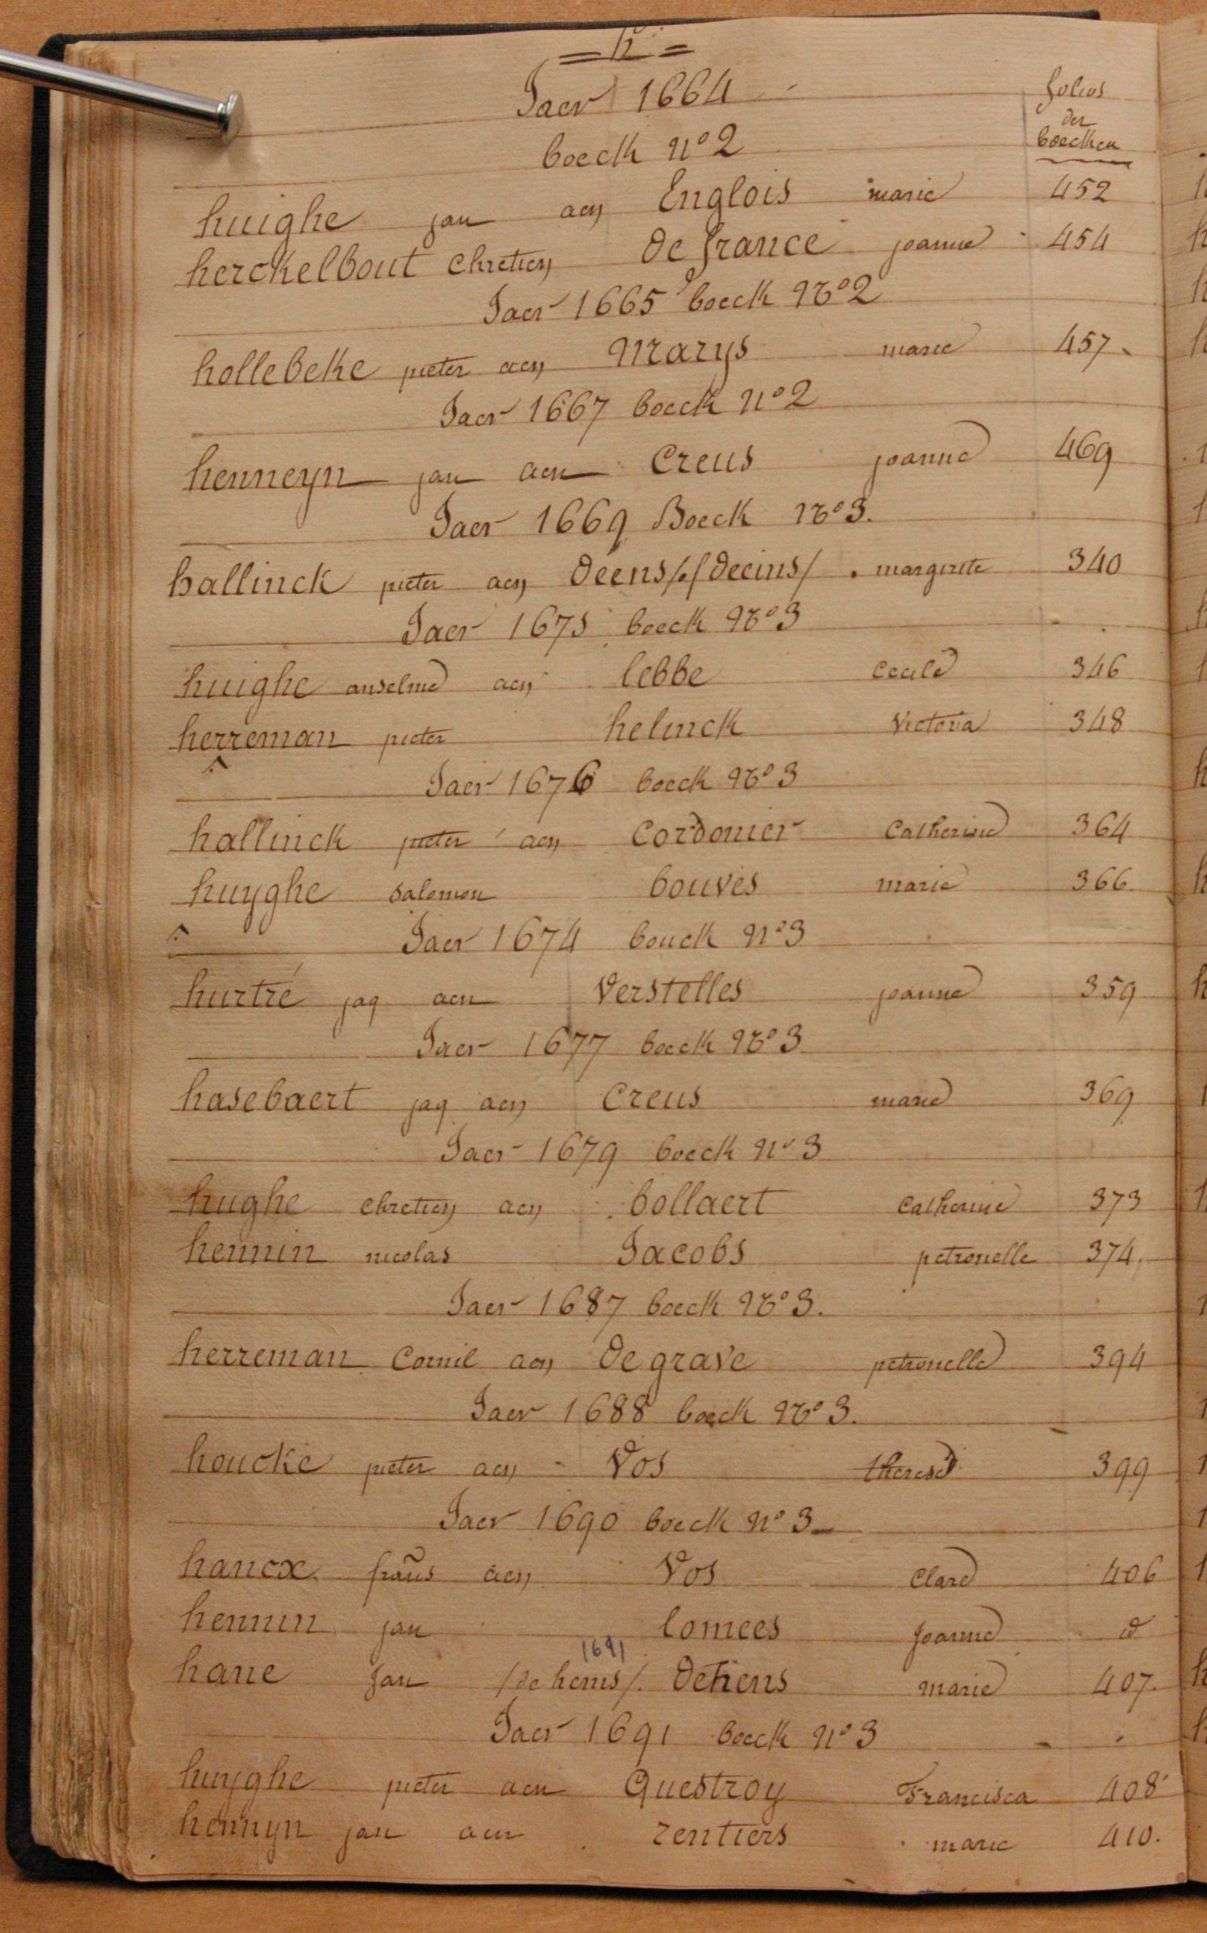 = h =
Jaer 1664
folios
der
boecken
boeck nº 2
huighe jan aen Englois marie 452
herckelbout chretien de france joanne 454
Jaer 1665 boeck Nº 2
hollebeke pieter aen Marys marie 457
Jaer 1667 boeck nº 2
henneyn jan aen Creus joanne 469
Jaer 1669 Boeck Nº 3.
hallinck pieter aen deens /of deeins/ margerite 340
Jaer 1671 boeck Nº 3
huighe anselme aen lebbe Cecile 346
herreman pieter helinck Victoria 348
Jaer 1676 boeck Nº 3
hallinck pieter aen Cordonier Catherine 364
huyghe salomon bouves marie 366
Jaer 1674 bouck nº 3
hurtré jaq aen Verstelles joanne 359
Jaer 1677 boeck Nº 3
hasebaert jaq aen Creus marie 369
Jaer 1679 boeck nº 3
hughe chretien aen bollaert Catherine 373
hennin nicolas Jacobs petronelle 374.
Jaer 1687 boeck Nº 3.
herreman Cornil aen de grave petronelle 394
Jaer 1688 boeck Nº 3.
houcke pieter aen Vos therese 399
Jaer 1690 boeck nº 3
hancx frans aen Vos Clare 406
hennin jan lomees joanne d
1691
hane jan /de hens/. dehens marie 407.
Jaer 1691 boeck nº 3
huyghe pieter aen Questroy Francisca 408
hennyn jan aen rentiers marie 410.